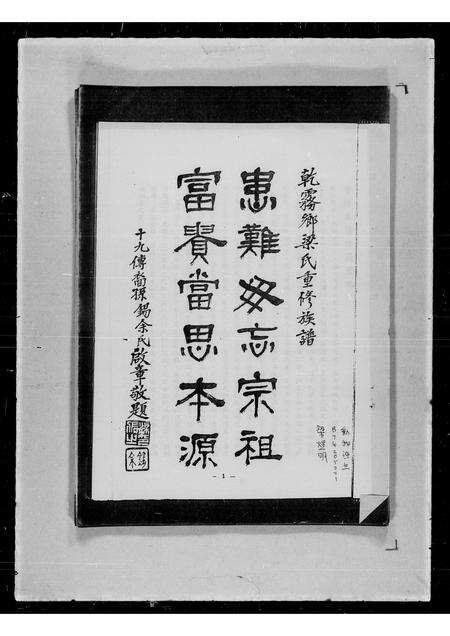 乾霧鄉梁氏重修族譜
患難毋忘宗祖
富貴當思本源
十九傳裔孫錫余氏啟章敬題
- 1 -
梁燈明